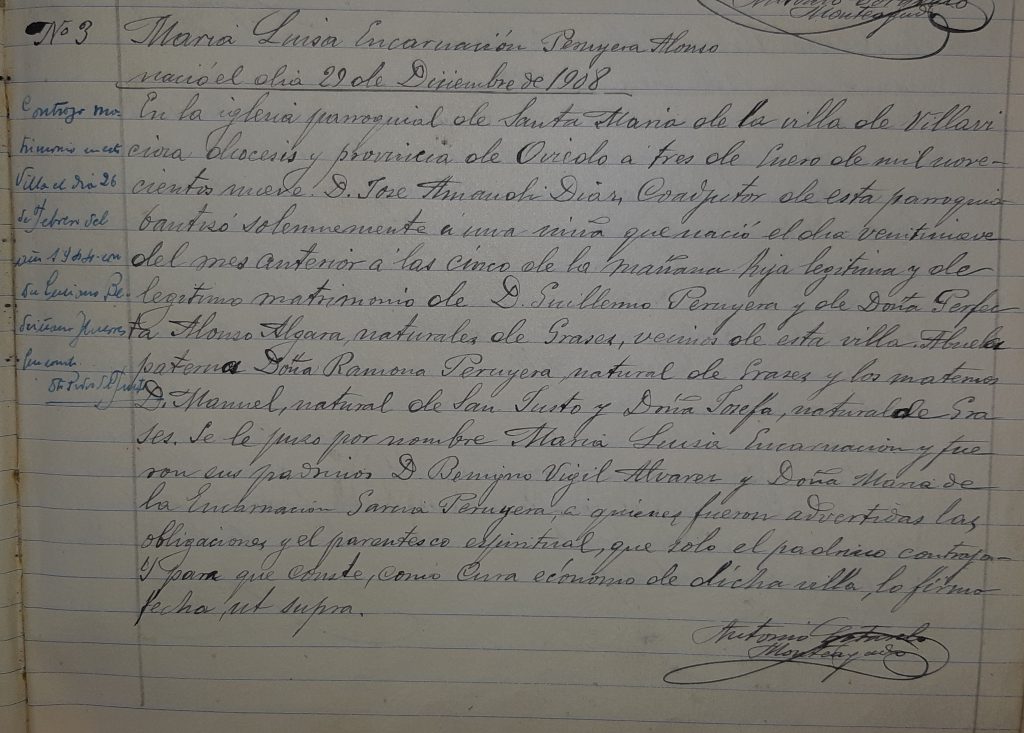 Monteagudo
Nº 3
Maria Luisa Encarnación Peruyera Alonso
nació el dia 29 de Diciembre de 1908
Contrajo ma-
trimonio en esta
Villa el dia 26
de Febrero del
año 1944 con
En la iglesia parroquial de Santa Maria de la villa de Villavi
ciosa diocesis y provincia de Oviedo a tres de Enero de mil nove-
cientos nueve. D. Jose Amandi Diaz, Coadjutor de esta parroquia
bautizó solemnemente á una niña que nació el dia veintinueve
del mes anterior a las cinco de la mañana hija legitima y de
legitimo matrimonio de D. Guillermo Peruyera y de Doña Perfec
ta Alonso Algara, naturales de Grases, vecinos de esta villa. Abuela
paterna Doña Ramona Peruyera, natural de Grases y los maternos
D. Manuel, natural de San Justo y Doña Josefa, natural de Gra
ses. Se le puso por nombre Maria Luisa Encarnación y fue
ron sus padrinos D Benigno Vigil Alvarez y Doña Maria de
la Encarnacion Garcia Peruyera, a quienes fueron advertidas las
obligaciones y el parentesco espiritual, que solo el padrino contrajo-
Y para que conste, como Cura ecónomo de dicha villa, lo firmo
fecha, ut supra.
Antonio
Monteagudo